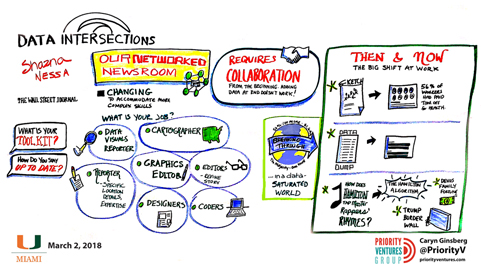 DATA INTERSECTIONS
Shazna
NESSA
THE WALL STREET JOURNAL
WHAT IS YOUR
TOOL KIT?
HOW DO YOU STAY
UP TO DATE?
OUR NETWORKED
NEWSROOM
CHANGING
TO ACCOMMODATE MORE
COMPLEX SKILLS
WHAT IS YOUR JOB?
DATA
VISUALS
REPORTER
CARTOGRAPHER
REPORTER
- SPECIFIC
DOMAIN
EXPERTISE
GRAPHICS
EDITOR
EDITORS
- REFINE
STORY
DESIGNERS
CODERS
REQUIRES
COLLABORATION
FROM THE BEGINNING. ADDING
DATA AT END DOESN'T WORK!
BREAKING
THROUGH
... in a data-
SATURATED
WORLD
THEN & NOW
THE BIG SHIFT AT WORK
SKETCH
56% OF
WORKERS
HAD PAID
TIME OFF
DATA
DUMP
HOW DOES
HAMILTON
RAPPERS'
RHYMES?
THE HAMILTON
ALGORITHM
FAMILY
TRUMP
BORDER
WALL
U
MIAMI
March 2, 2018
PRIORITY
VENTURES
GROUP
Caryn Ginsberg
@PriorityV
priorityventures.com